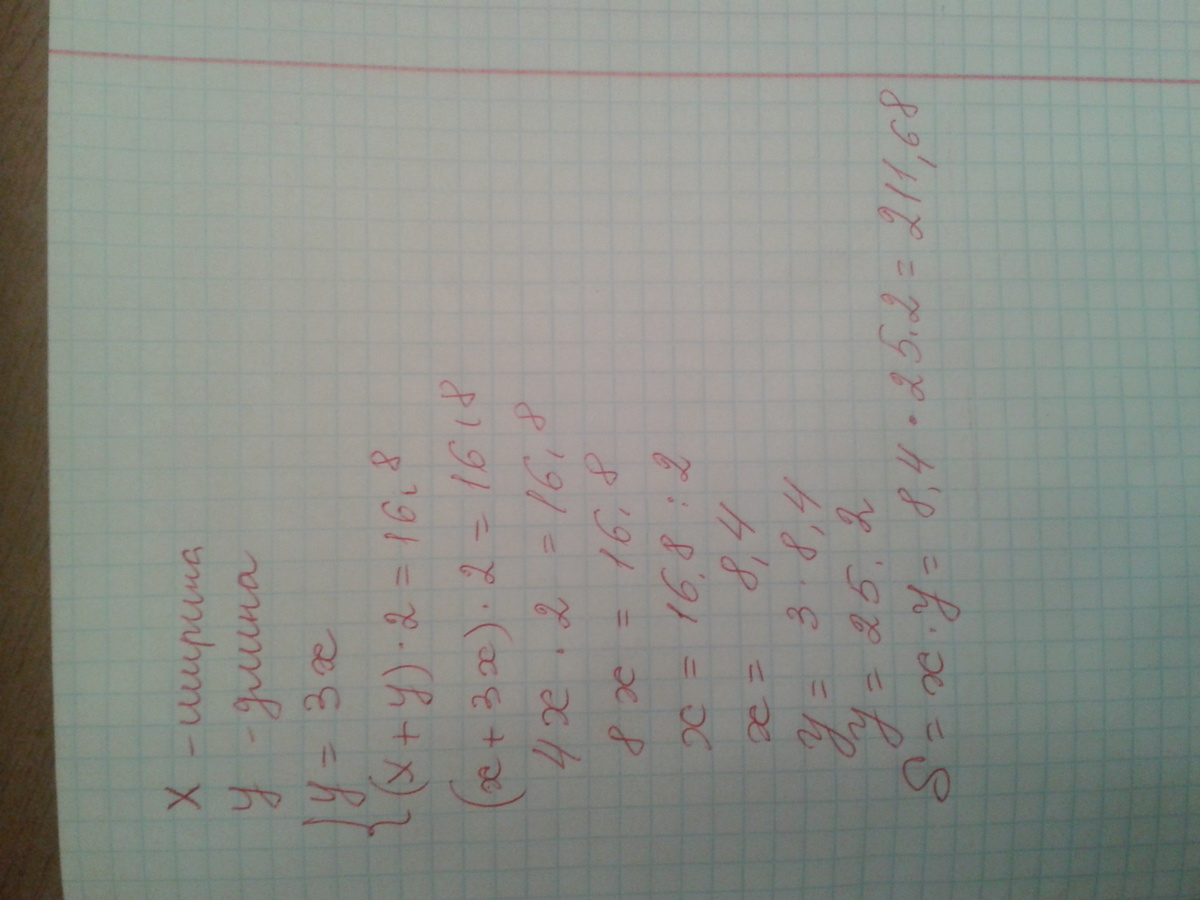 x - ширина
y - длина
{ y = 3x
(x + y) · 2 = 16,8
(x + 3x) · 2 = 16,8
4x · 2 = 16,8
8x = 16,8
x = 16,8 : 2
x = 8,4
y = 3 · 8,4
y = 25.2
S = x · y = 8,4 · 25.2 = 211,68